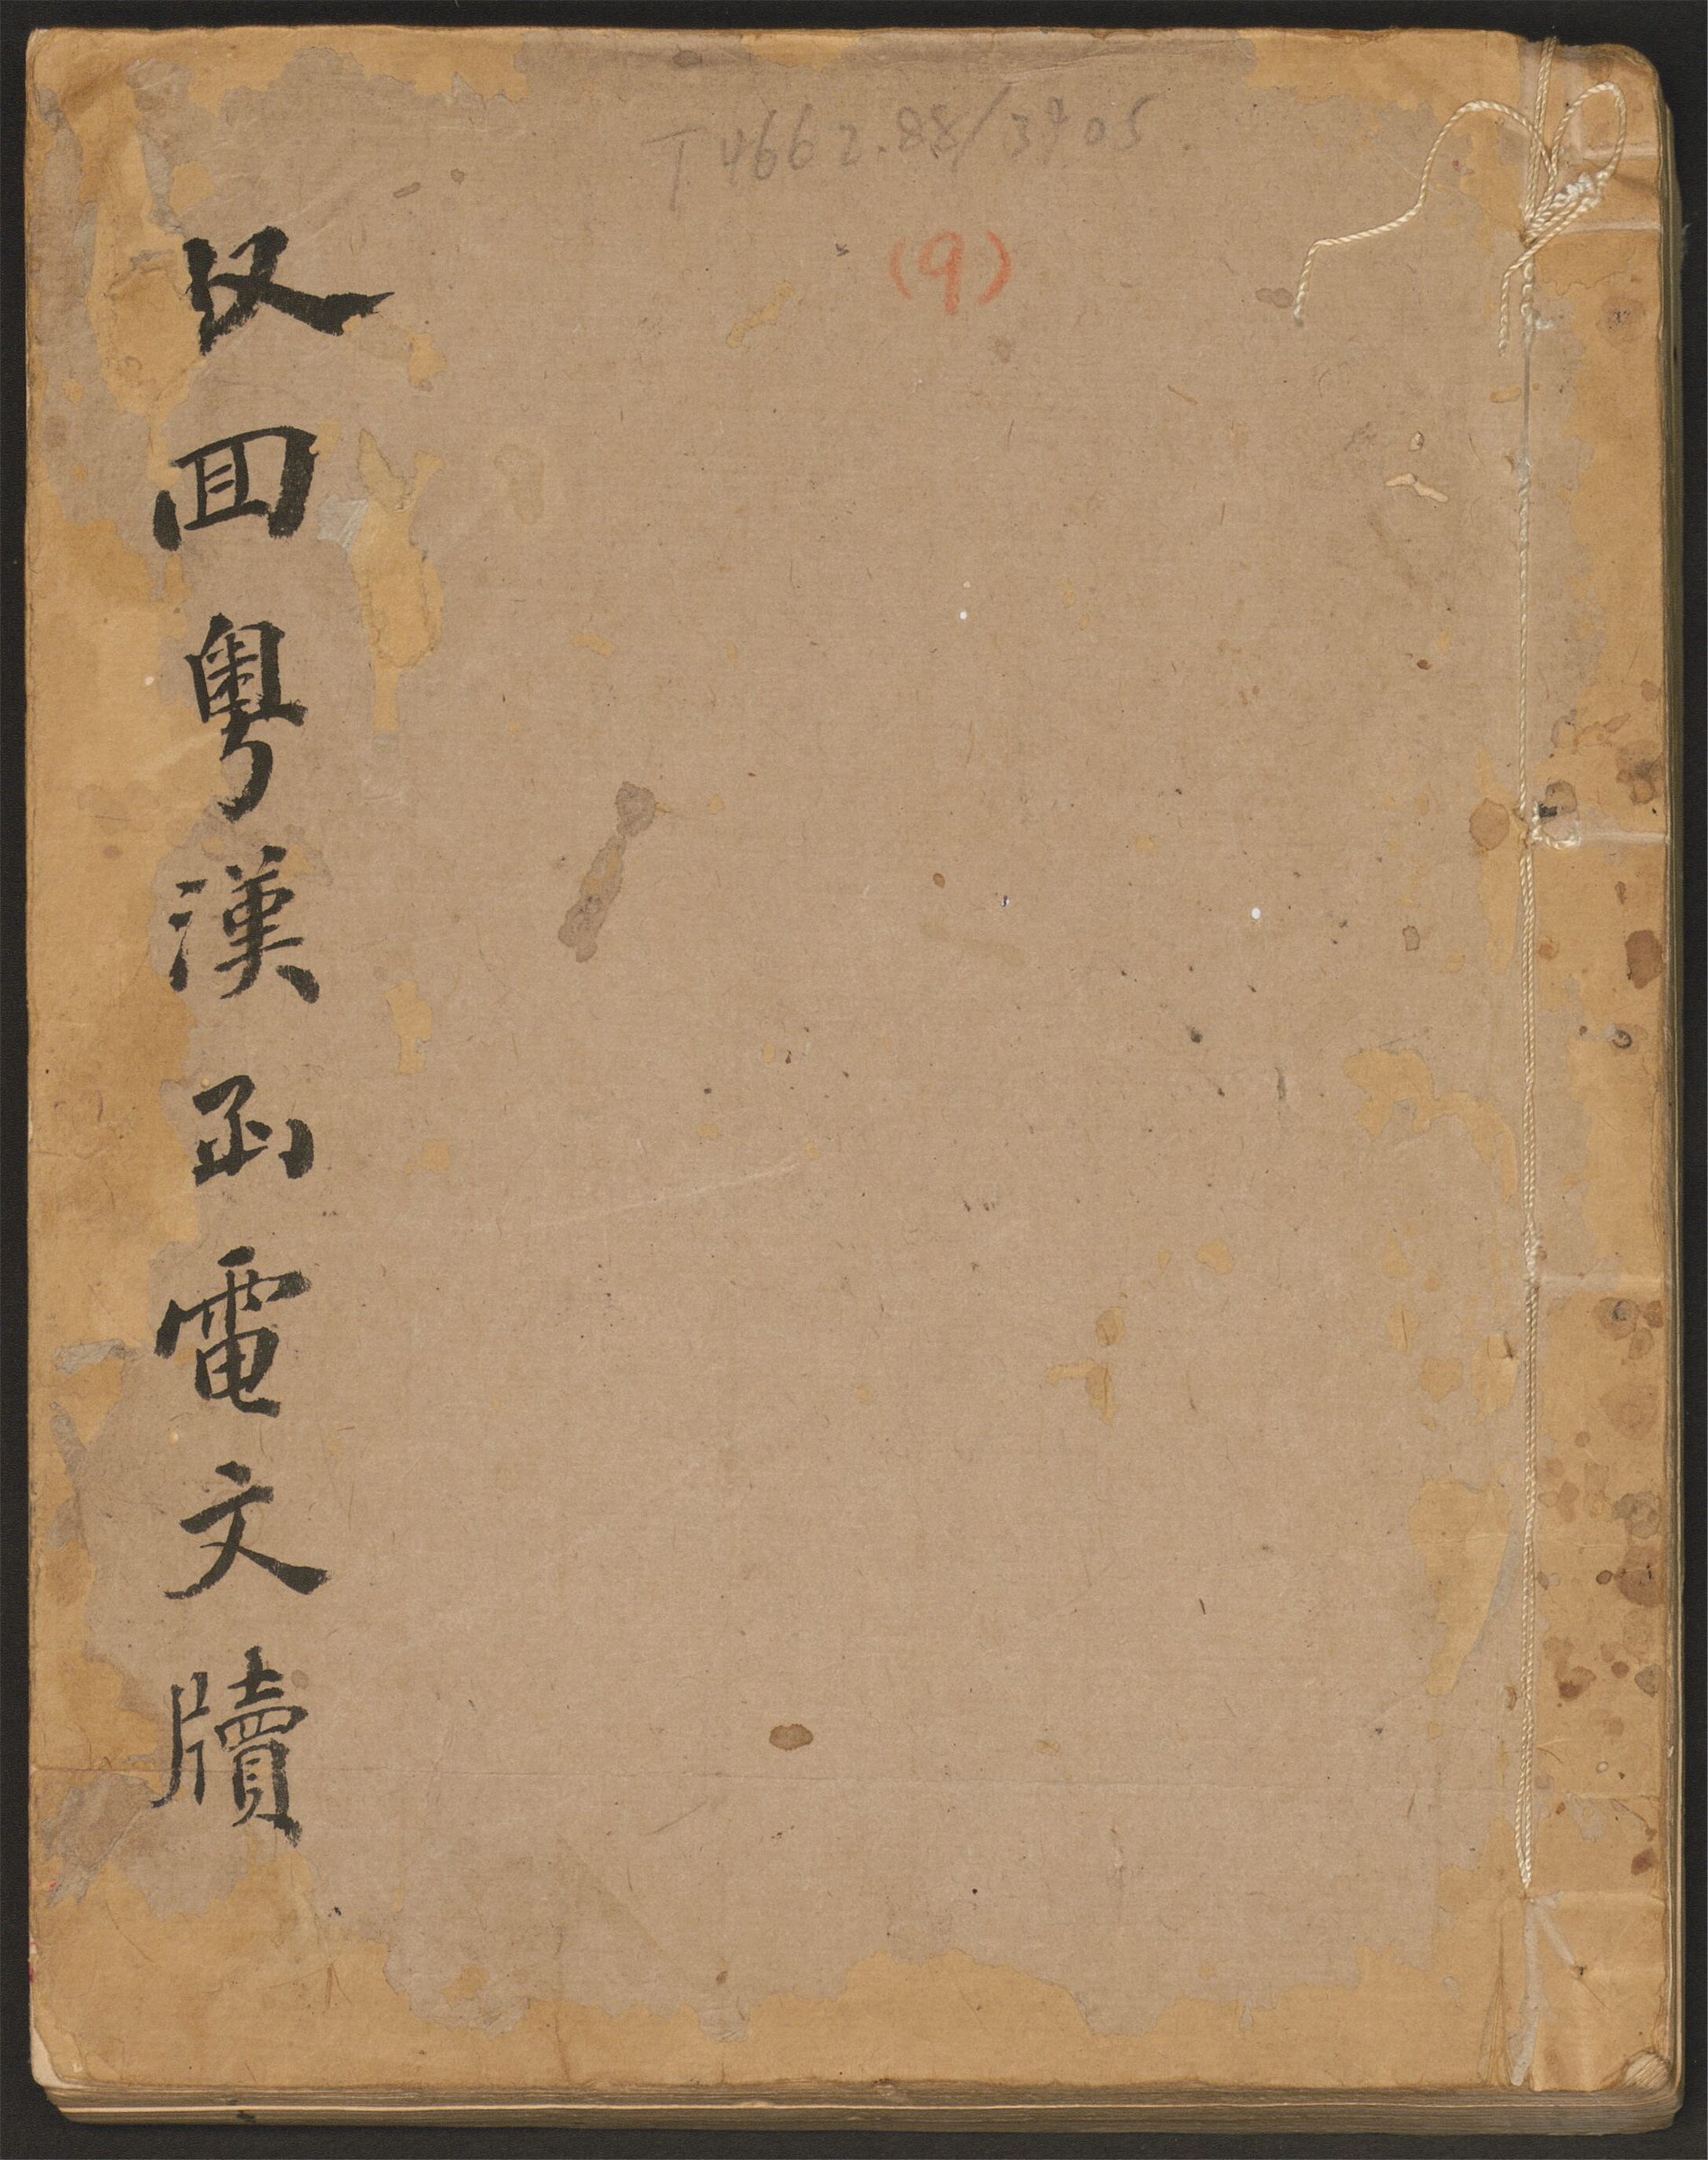 T 4662.88/3905.
(9)
収囬粵漢函電文牘